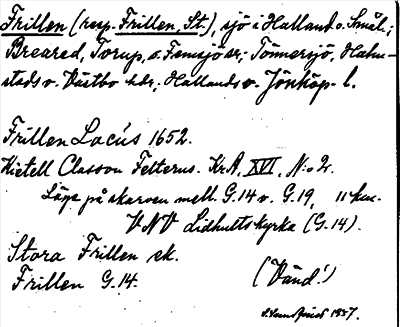 Frillen (resp. Frillen, St.), sjö i Halland o. Smål.;
Breared, Torup, o. Femsjö sr; Tönnersjö, Halm-
stads o. Västbo hdr; Hallands o. Jönköp. l.
Frillen Lacus 1652.
Kietell Classon Felterus. Kr.A. XVI, N:o 2.
Läge på skarven mell. G.14 o. G.19, 11 km.
VNV Lidhults kyrka (G.14).
Stora Frillen ek.
Frillen G.14. (Vänd!)
1887.